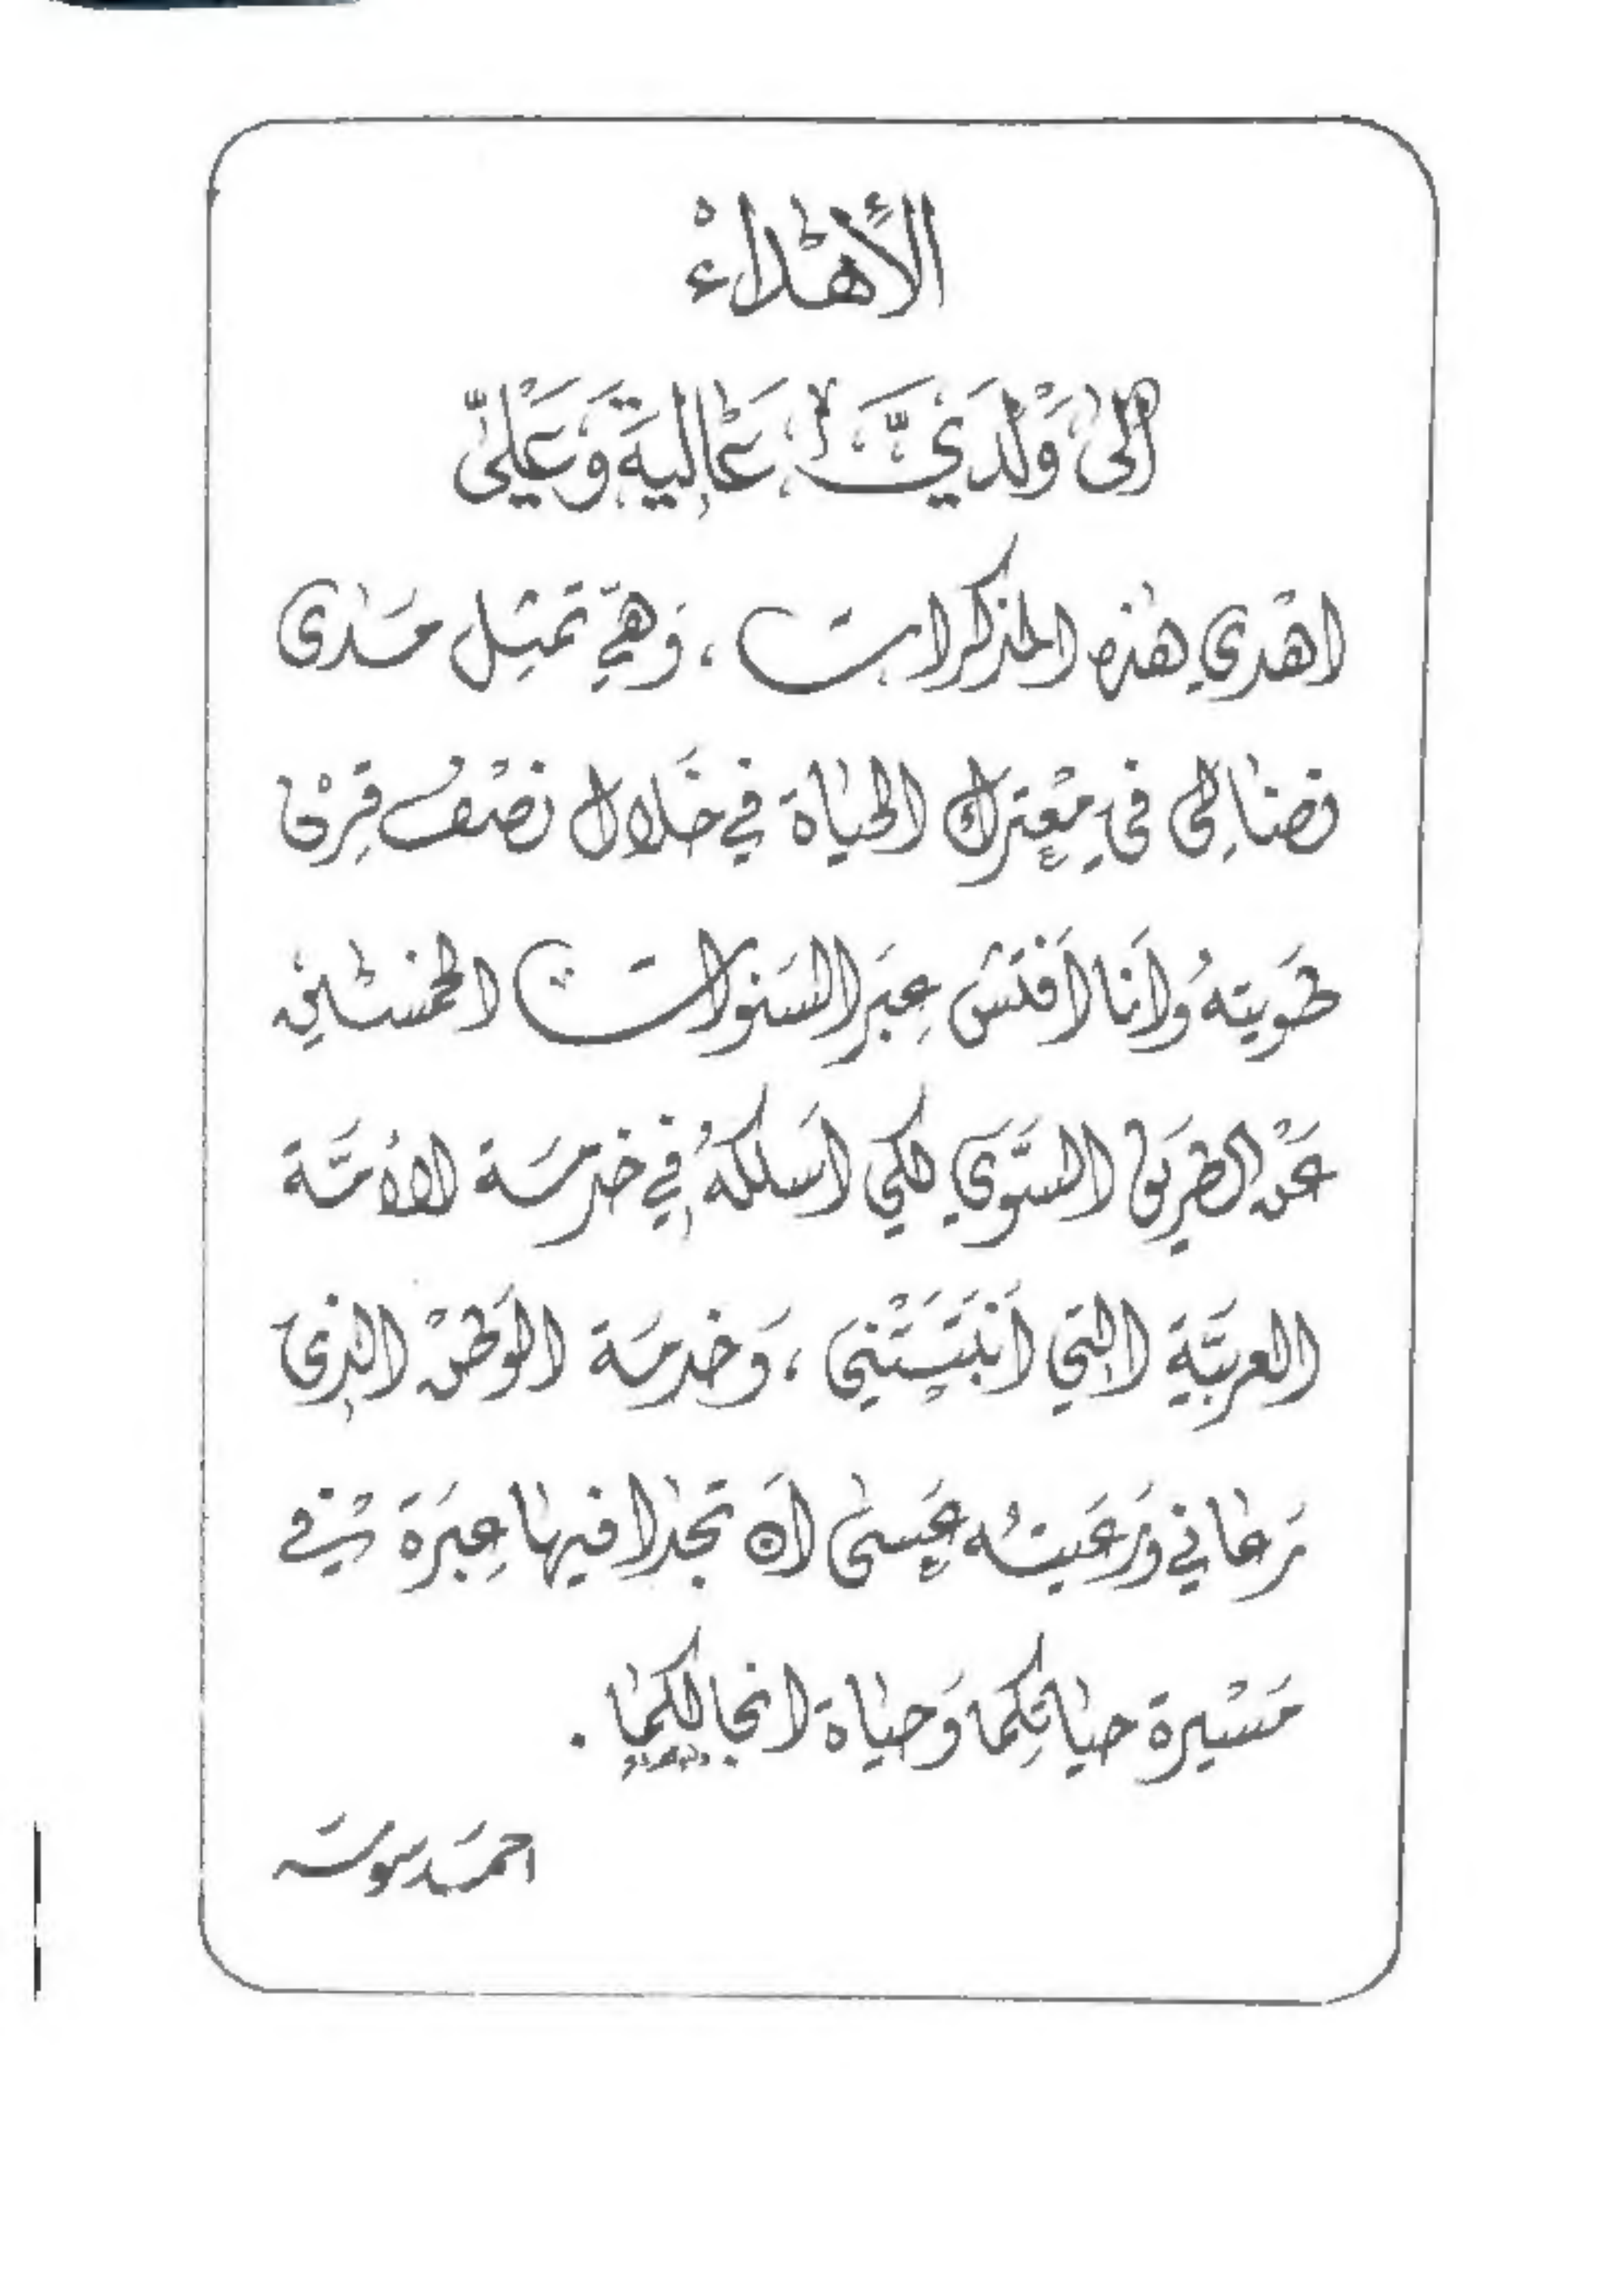 الأهداء
إلى وَلَدَيَّ عَالية وَعَليّ
اهدي هذه المذكرات ، وَهي تمثل مَدى
نضالي في معترك الحياة في خلال نصف قرن
طويته وأنا أفتش عبر السنوات الخمسين
عن الطريق السَّوي لكي أسلكهُ في خدمة الأمَّة
العربيَّة التي أنبتتني ، وَخدمة الوَطن الذي
رعاني ورعيته عسى أن تجدا فيها عبرة في
مسيرة حياتكما وَحياة انجالكما .
احمد سوسه